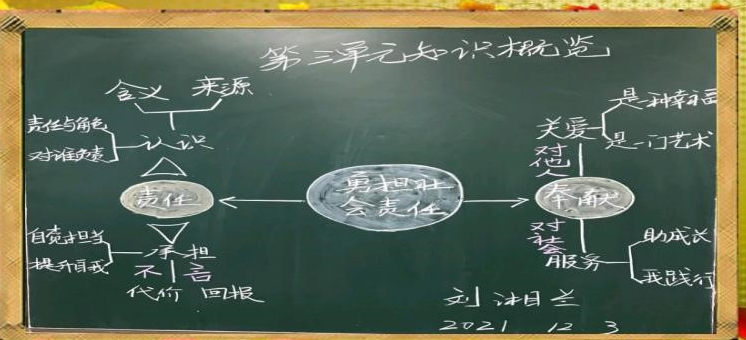 第三单元知识概览
含义 来源
责任与角色
对谁负责
认识
责任
自觉担当
提升自我
承担
不 言
代价 回报
勇担社
会责任
奉献
对他人
关爱
是一种幸福
是一门艺术
对社会
服务
助成长
我践行
刘湘兰
2021 12 3